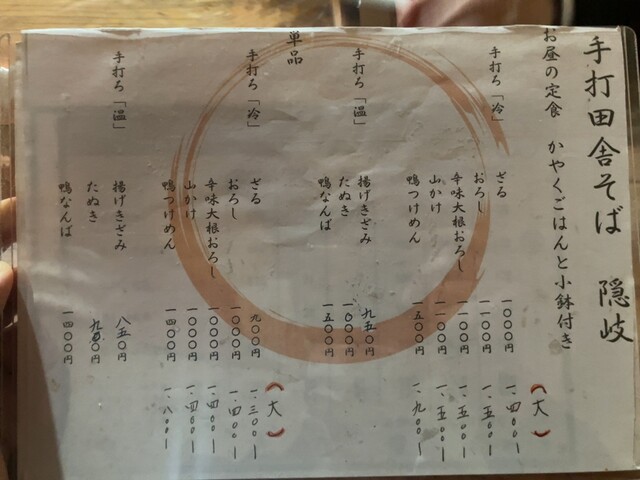 手打田舎そば 隠岐
お昼の定食 かやくごはんと小鉢付き
手打ち「冷」 (大)
ざる 一〇〇〇円 一、四〇〇ー
おろし 一一〇〇円 一、五〇〇ー
辛味大根おろし 一一〇〇円 一、五〇〇ー
山かけ 一一〇〇円 一、五〇〇ー
鴨つけめん 一五〇〇円 一、九〇〇ー
手打ち「温」
揚げきざみ 九五〇円
たぬき 一〇〇〇円
鴨なんば 一五〇〇円
単品
手打ち「冷」 (大)
ざる 九〇〇円 一、三〇〇ー
おろし 一〇〇〇円 一、四〇〇ー
辛味大根おろし 一〇〇〇円 一、四〇〇ー
山かけ 一〇〇〇円 一、四〇〇ー
鴨つけめん 一四〇〇円 一、八〇〇ー
手打ち「温」
揚げきざみ 八五〇円
たぬき 九〇〇円
鴨なんば 一四〇〇円